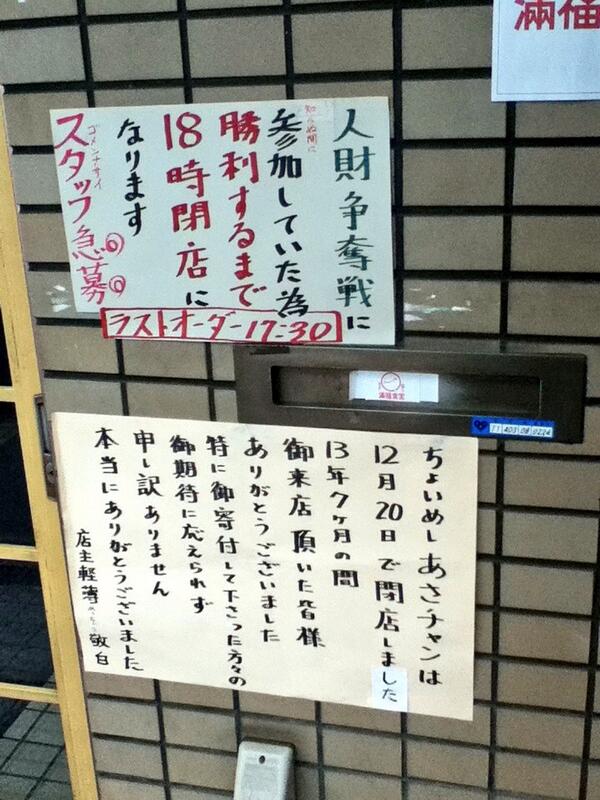 満福
人財争奪戦に
知らぬ間に
参加していた為
勝利するまで
18時閉店に
なります
ゴメンナサイ
スタッフ急募
ラストオーダー17:30
満福食堂
11 403 08 0224
ちょいめしあさチャンは
12月20日で閉店しました
13年7ヶ月の間
御来店頂いた皆様
ありがとうございました
特に御寄付して下さった方々の
御期待に応えられず
申し訳ありません
本当にありがとうございました
店主軽薄 敬白